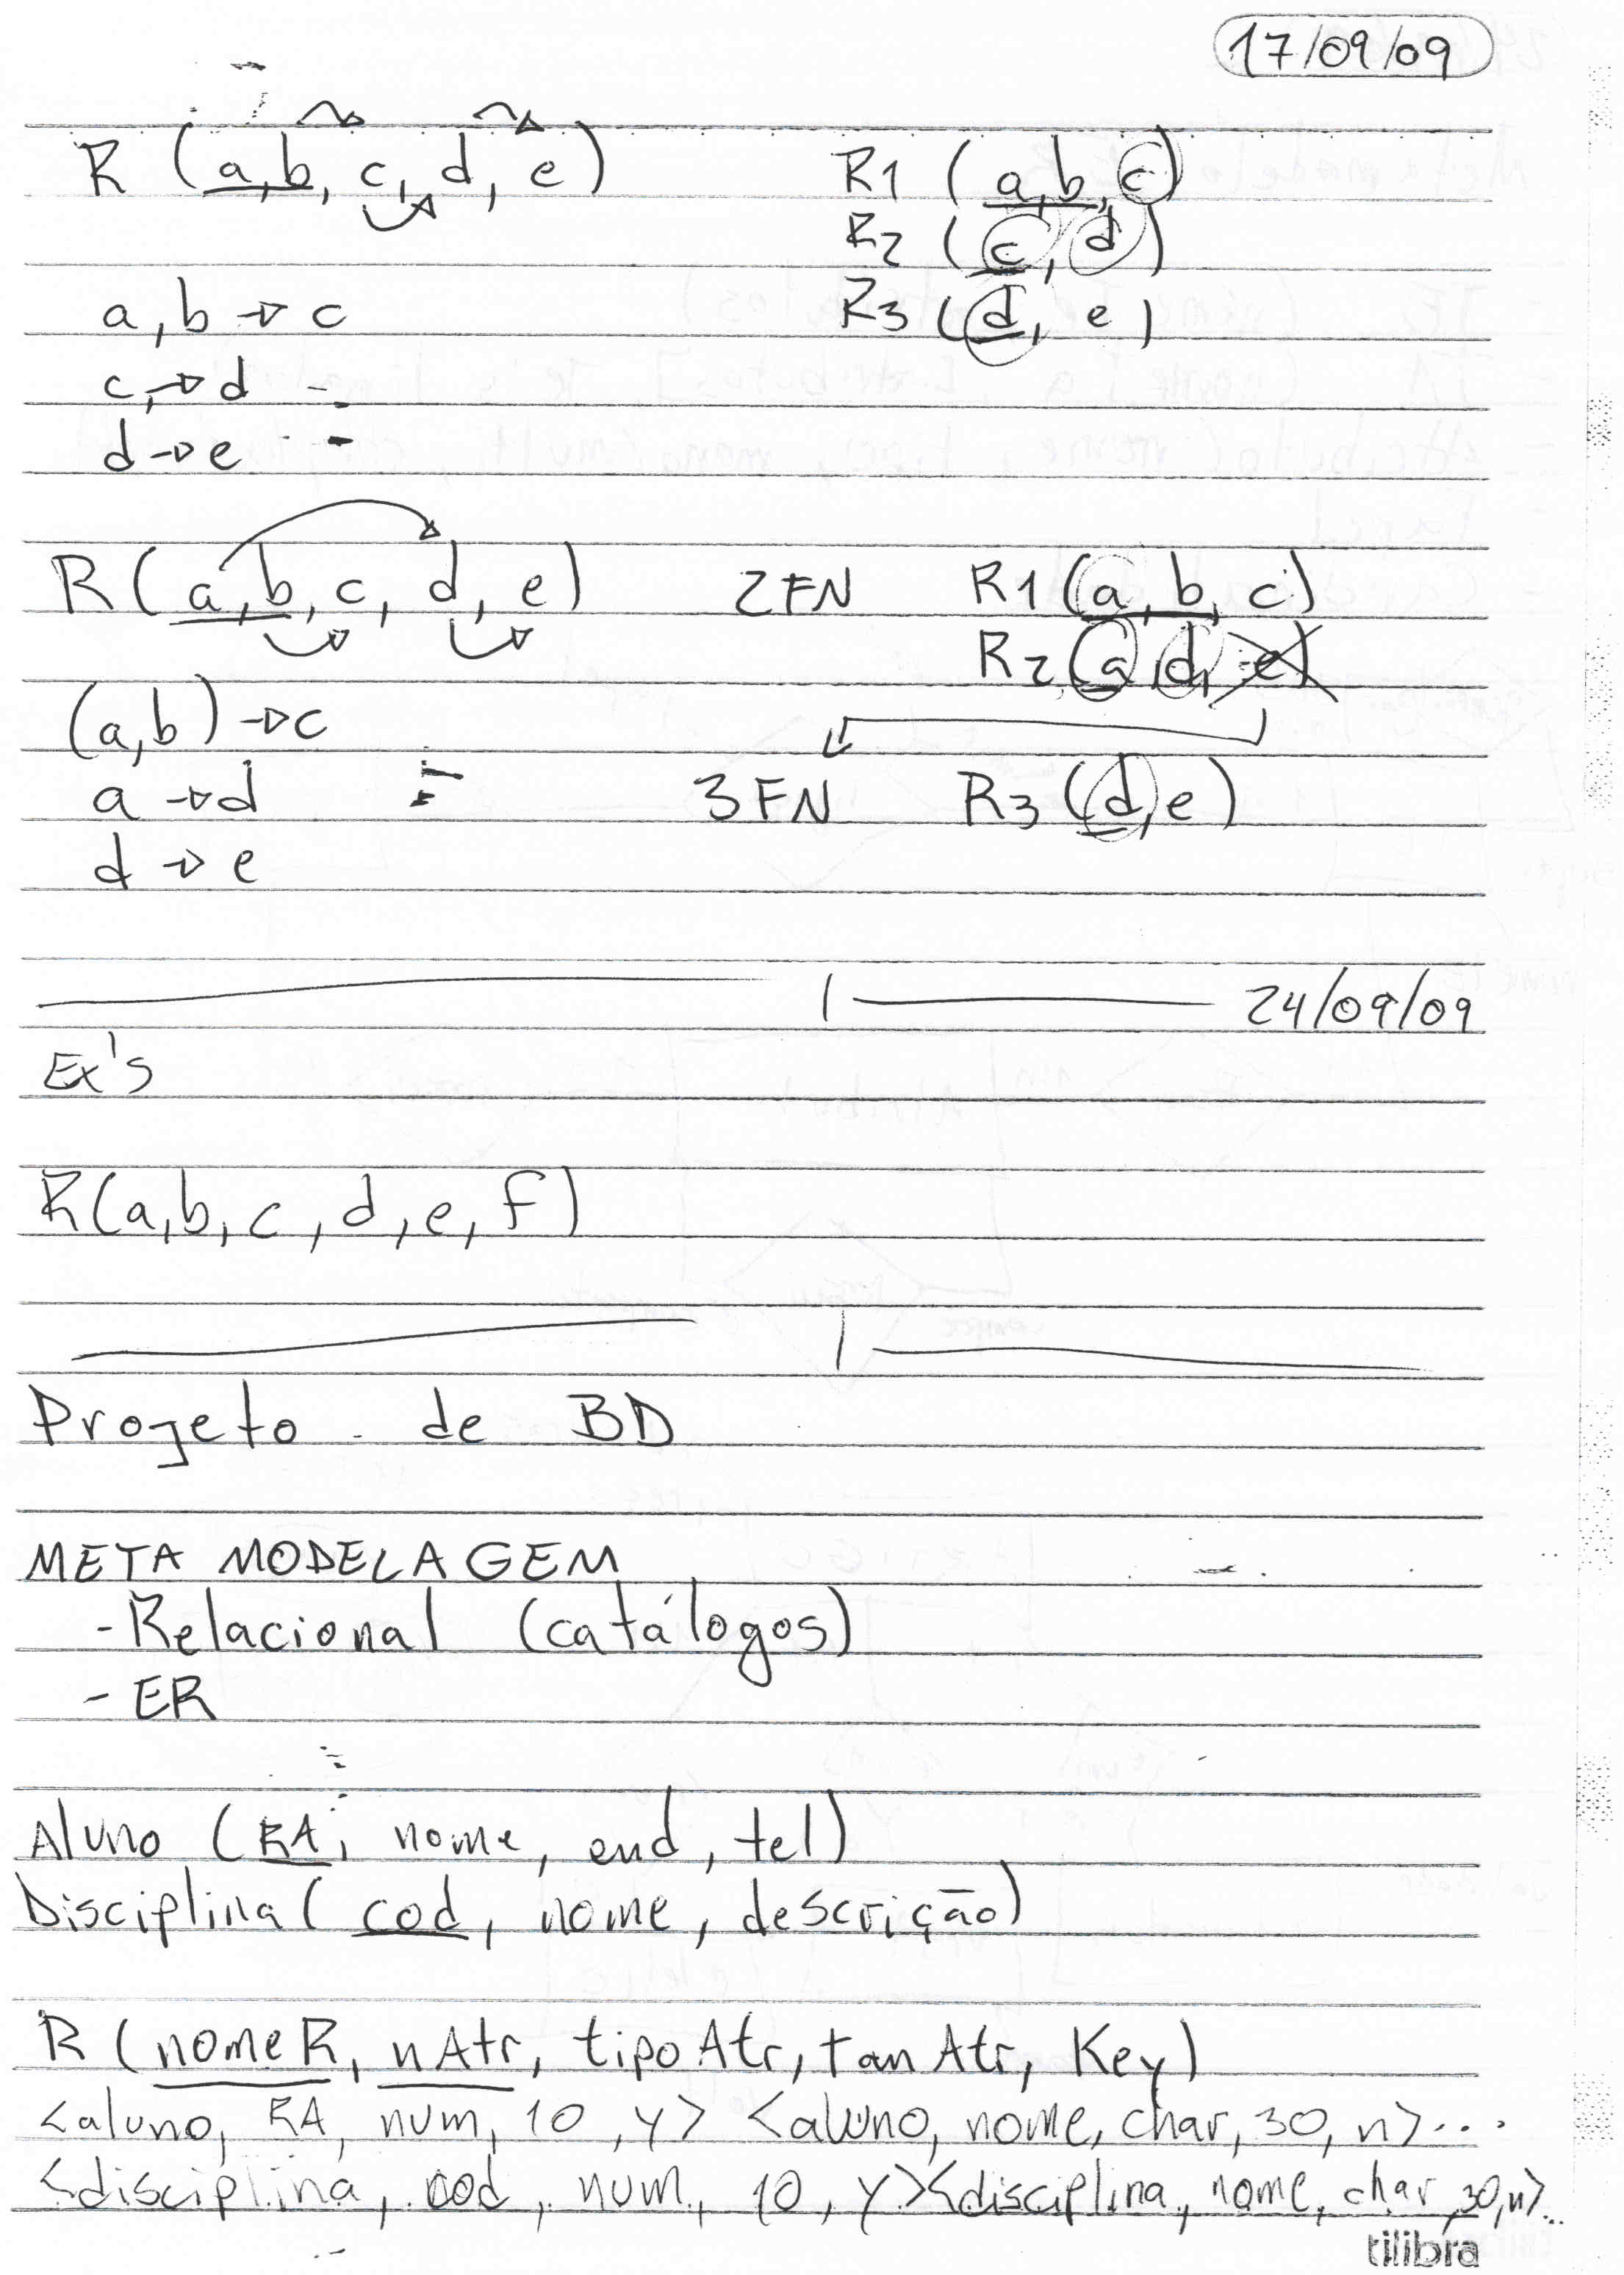 17/09/09
R (a, b, c, d, e)
a, b → c
c → d
d → e
R1 (a, b, c)
R2 (c, d)
R3 (d, e)
R (a, b, c, d, e)
(a, b) → c
a → d
d → e
2FN R1 (a, b, c)
R2 (a, d, e)
3FN R3 (d, e)
24/09/09
Ex's
R(a, b, c, d, e, f)
Projeto de BD
META MODELAGEM
- Relacional (catálogos)
- ER
Aluno (RA, nome, end, tel)
Disciplina ( cod, nome, descrição)
R (nomeR, nAtr, tipoAtr, tanAtr, Key)
<aluno, RA, num, 10, y> <aluno, nome, char, 30, n>...
<disciplina, cod, num, 10, y><disciplina, nome, char, 30, n>...
tilibra